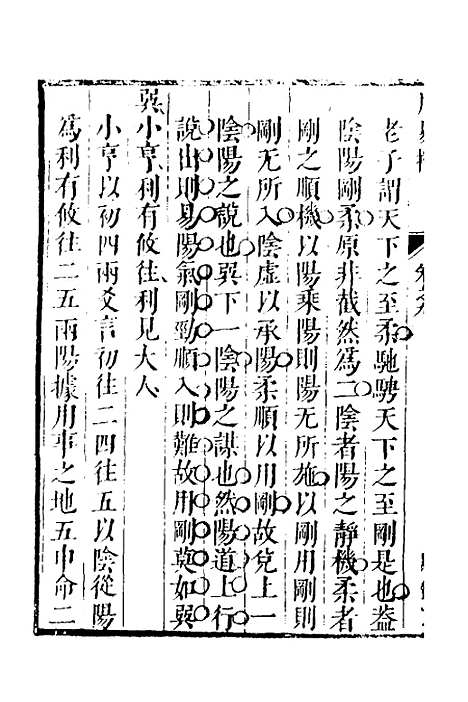 老子謂天下之至柔馳騁天下之至剛是也葢
陰陽剛柔原非截然爲二陰者陽之靜機柔者
剛之順機以陽乘陽則陽无所施以剛用剛則
剛无所入陰虛以承陽柔順以用剛故兌上一
陰陽之說也巽下一陰陽之謀也然陽道上行
說出則易陽氣剛勁順入則難故用剛莫如巽
巽小亨利有攸往利見大人
小亨以初四兩爻言初往二四往五以陰從陽
爲利有攸往二五兩陽據用事之地五申命二